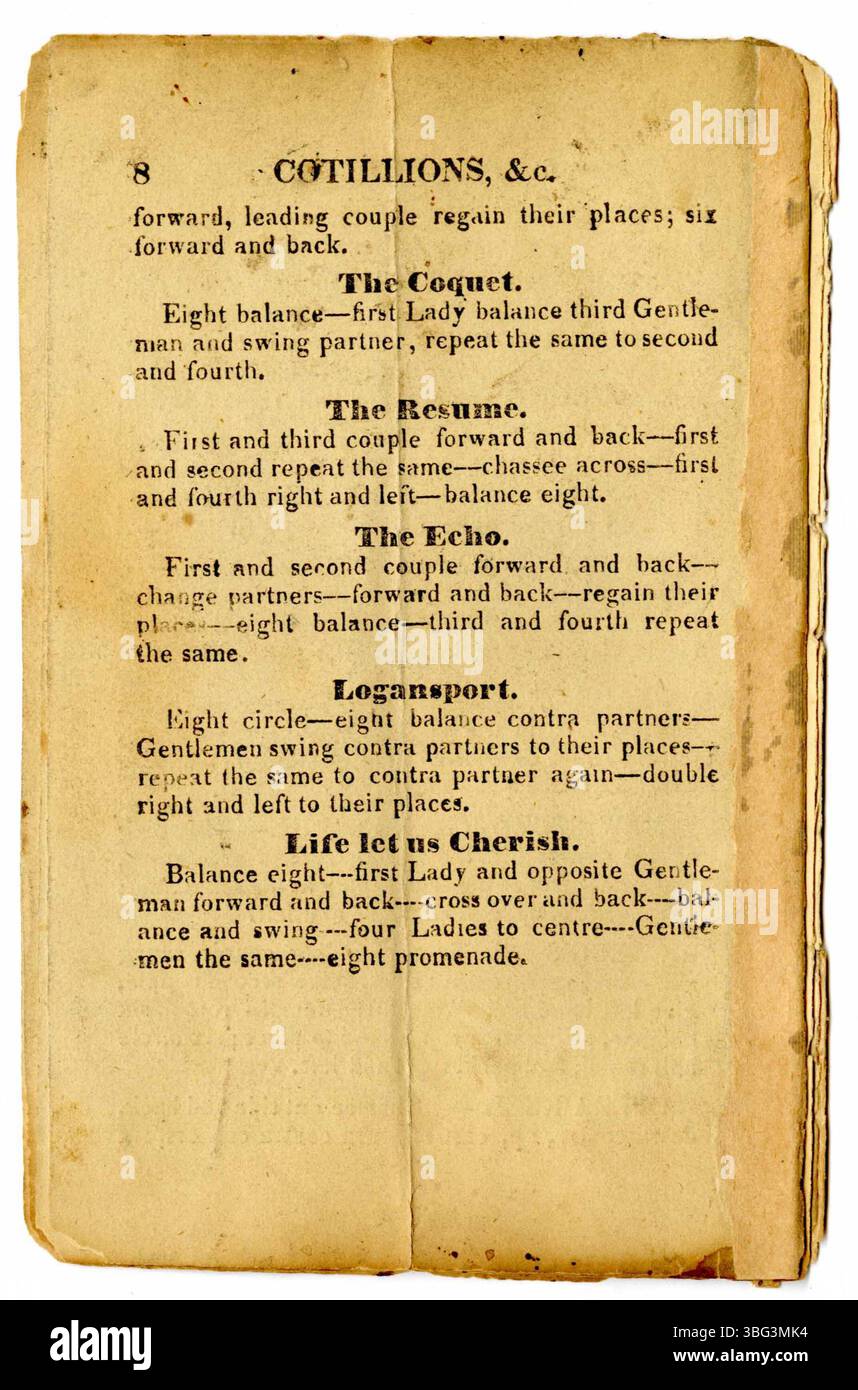 8 COTILLIONS, &c.
forward, leading couple regain their places; six
forward and back.
The Coquet.
Eight balance—first Lady balance third Gentle-
man and swing partner, repeat the same to second
and fourth.
The Resume.
First and third couple forward and back—first
and second repeat the same—chassee across—first
and fourth right and left—balance eight.
The Echo.
First and second couple forward and back—
change partners—forward and back—regain their
—eight balance—third and fourth repeat
the same.
Logansport.
Eight circle—eight balance contra partners—
Gentlemen swing contra partners to their places—
repeat the same to contra partner again—double
right and left to their places.
Life let us Cherish.
Balance eight—first Lady and opposite Gentle-
man forward and back—cross over and back—bal-
ance and swing—four Ladies to centre—Gentle-
men the same—eight promenade.
a alamy
alamy
Image ID: 3BG3MK4
www.alamy.com